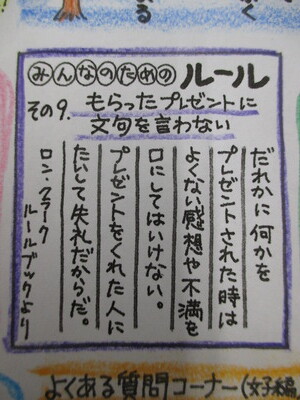 る
く
みんなのための ルール
その9. もらったプレゼントに
文句を言わない
だれかに何かを
プレゼントされた時は
よくない感想や不満を
口にしてはいけない。
プレゼントをくれた人に
たいして失礼だからだ。
ロン・クラーク
ルールブックより
よくある質問コーナー(女子編